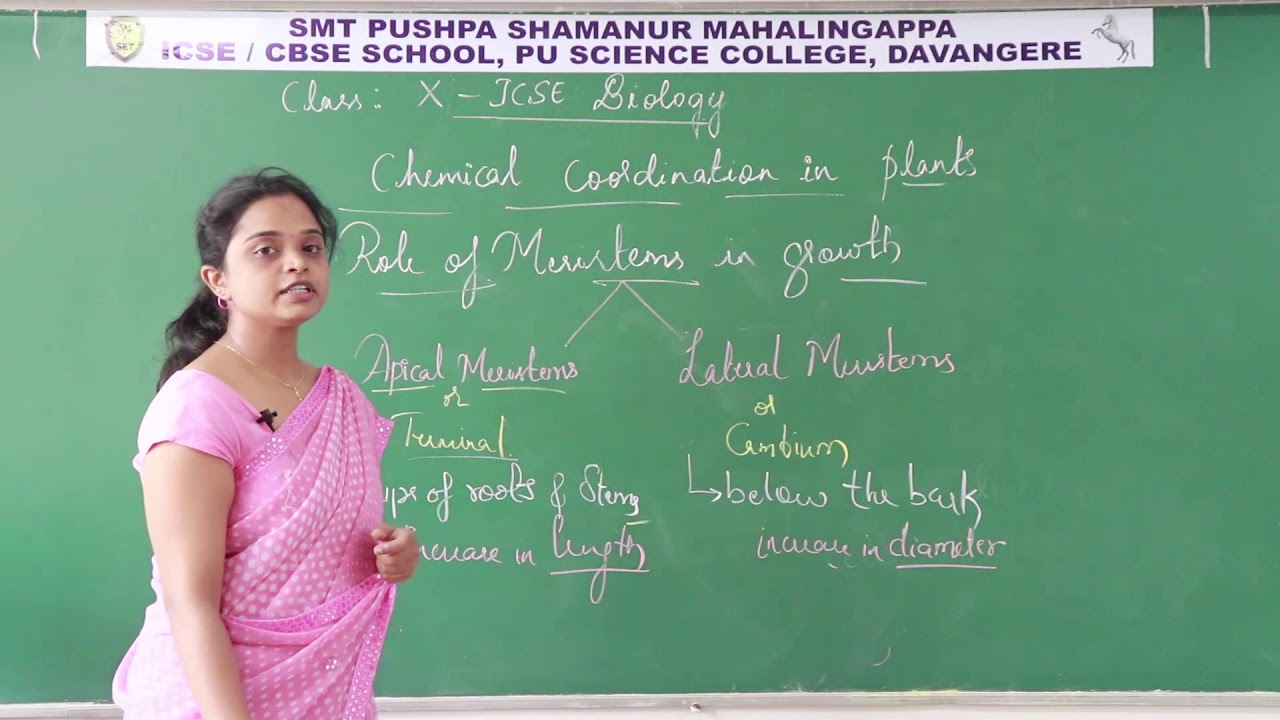 SMT PUSHPA SHAMANUR MAHALINGAPPA
ICSE / CBSE SCHOOL, PU SCIENCE COLLEGE, DAVANGERE
Class: X - ICSE Biology
Chemical coordination in plants
Role of Meristems in growth
Apical Meristems
or
Terminal
of roots & Stems
increase in length
Lateral Meristems
or
Cambium
below the bark
increase in diameter